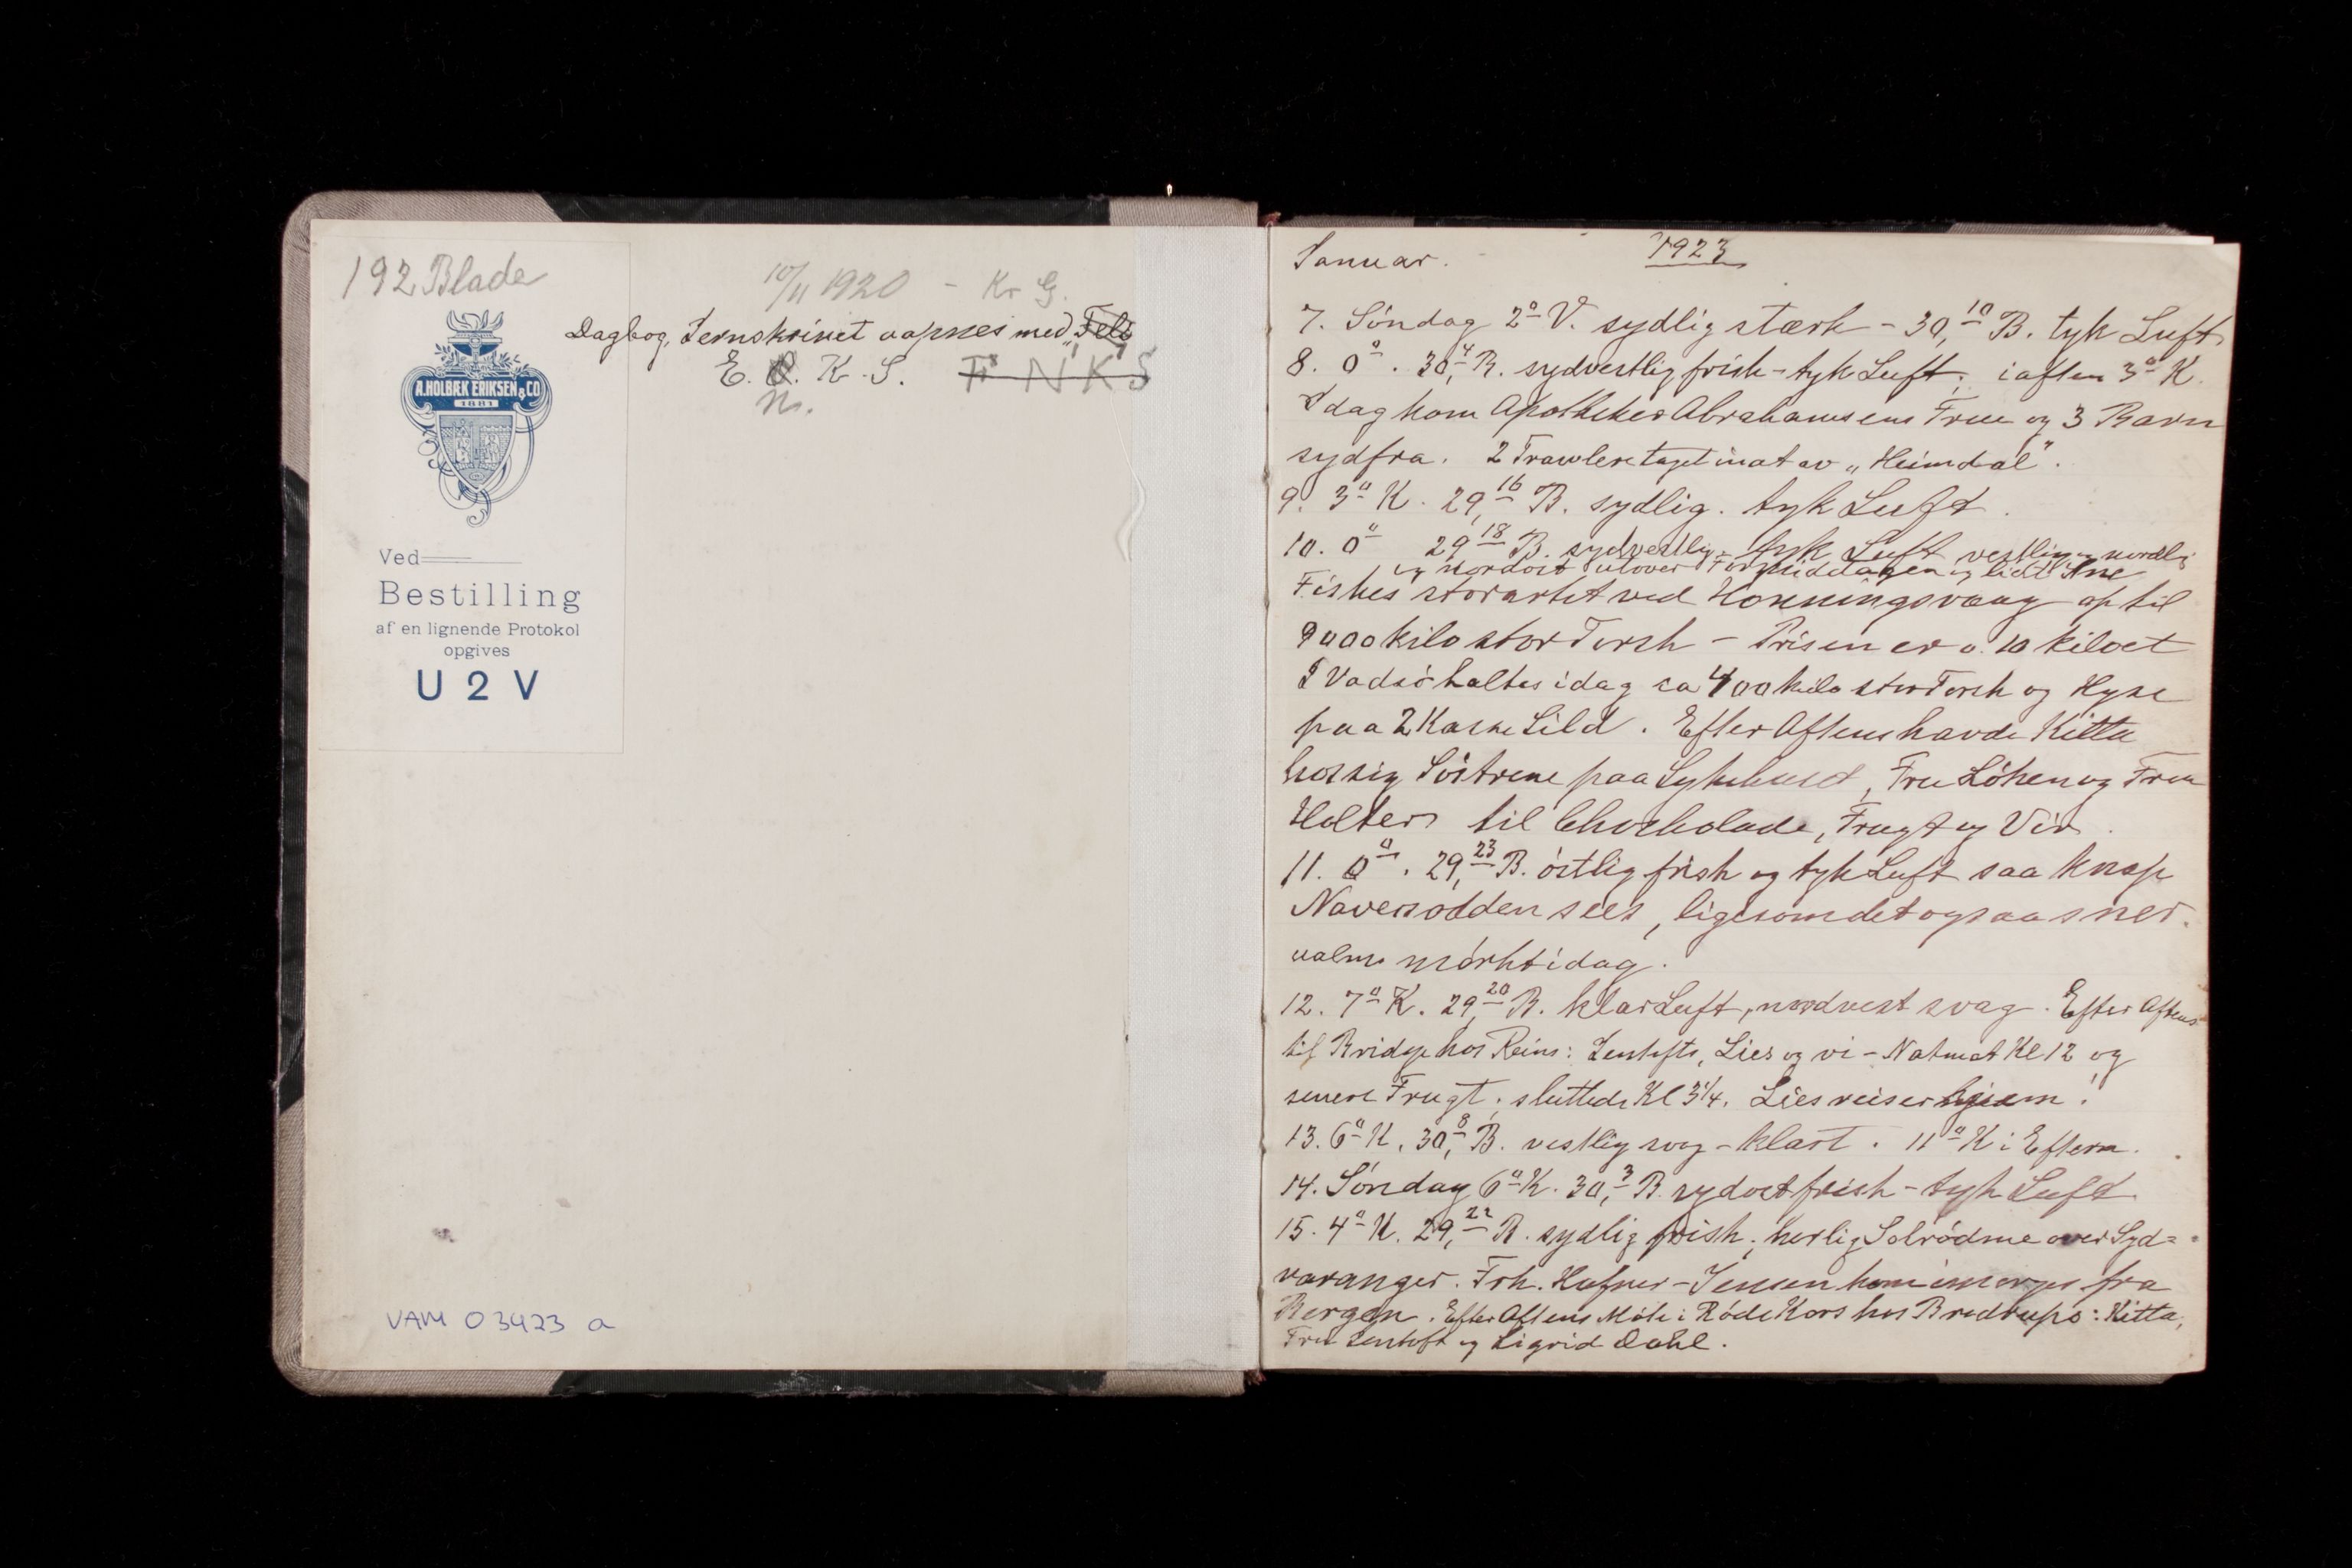 192 Blade
10/11 1920 - Kr G.
Dagbog, Jernskrinet aapnes med "Felt"
E. K. S. F N K S
N.
A. HOLBÆK ERIKSEN & CO
1881
Ved
Bestilling
af en lignende Protokol
opgives
U 2 V
VAM 03423 a
Januar. 1923
7. Söndag 2° V. sydlig stærk - 30,10 B. tyk Luft
8. 0°. 30,4 B. sydvestlig frisk - tyk Luft; iaften 3° K.
Idag kom Apotheker Abrahamsens Frue og 3 Barn
sydfra. 2 Trawlere taget inat av "Heimdal".
9. 3° K. 29,16 B. sydlig. tyk Luft.
10. 0° 29,18 B. sydvestlig - tyk Luft vestlig og nordlig
og nordost utover Formiddagen og lidt Sne
Fiskes storartet ved Honningsvaag op til
9000 kilo stor Torsk - Prisen er o. 10 kiloet
I Vadsö haltes idag ca 400 kilo stor Torsk og Hyse
paa 2 Kasse Sild. Efter Aftens havde Kitta
hos sig Söstrene paa Sykehuset, Fru Löken og Frue
Holter til Chockolade, Frugt og Vin.
11. 0°. 29,23 B. östlig frisk og tyk Luft saa knap
Naversodden sees, ligesom det ogsaa sner.
ualm. mörkt idag.
12. 7° K. 29,20 B. klar Luft, nordvest svag. Efter Aftens
til Bridge hos Reins: Lentofts, Lies og vi - Natmat Kl 12 og
senere Frugt; sluttede Kl 3 1/4. Lies reiser hjem!
13. 6° K. 30,8 B. vestlig svag - klart. 11° K i Efterm.
14. Söndag 6° K. 30,3 B. sydost frisk - tyk Luft.
15. 4° K. 29,22 B. sydlig frisk; herlig Solrödme over Syd=
varanger. Frk. Hafner-Jensen kom imorges fra
Bergen. Efter Aftens Möte i Röde Kors hos Bredrups: Kitta,
Fru Lentoft og Sigrid Dahl.